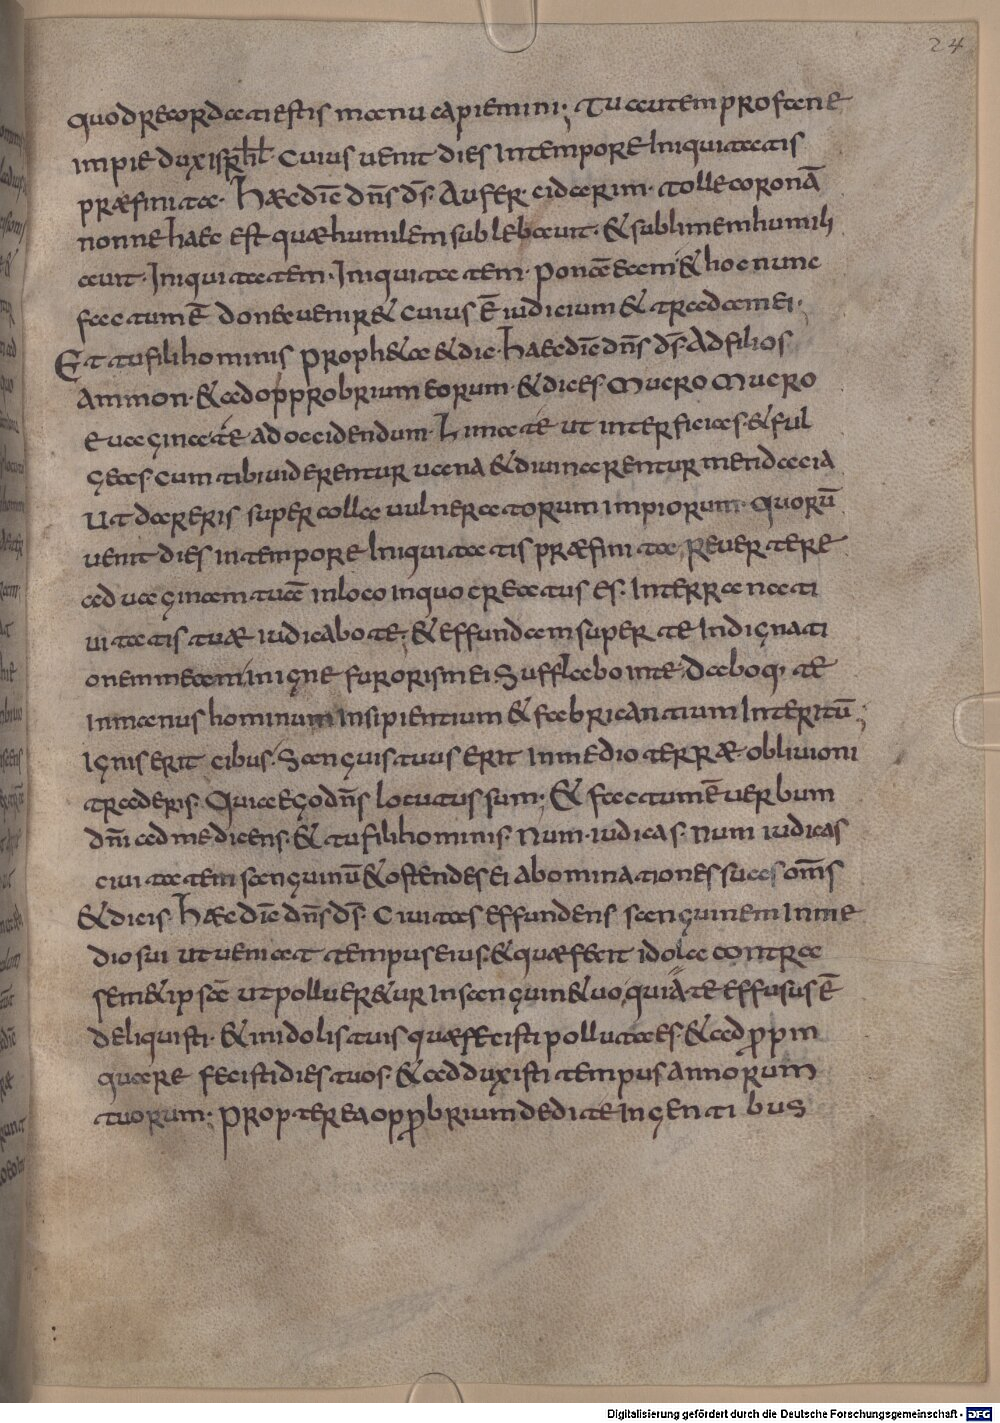 24
quod recordati estis manu capiemini; Tu autem profane
impie dux isrhl. Cuius uenit dies In tempore Iniquitatis
præfinita. hæc dic dns ds. Aufer cidarim. tolle coronā
nonne haec est quæ humilem subleuauit. & sublimem humili
auit. Iniquitatem. Iniquitatem. ponā eam & hoc nunc
factum ē donec ueniret cuius ē iudicium & tradam ei.
Et tu fili hominis proph&a & dic. haec dic dns ds. Ad filios
Ammon. & ad opprobrium eorum. & dices Mucro Mucro
Euagina te Ad occidendum. Lima te ut interficias. & ful
geas. Cum tibi uiderentur uana & diuinarentur mendacia
Ut dareris super colla uulneratorum impiorum. quorū
uenit dies in tempore Iniquitatis præfinita, reuertere
ad uaginam tuā in loco in quo creatus es. In terra nati
uitatis tuæ iudicabo te; & effundam super te Indignati
onem meam. in igne furoris mei Sufflabo in te. Daboq; te
In manus hominum Insipientium & fabricantium Interitū;
Ignis erit cibus. Sanguis tuus erit In medio terræ. obliuioni
traderis. Quia ego dns locutus sum; & factum ē uerbum
dni ad me dicens. & tu fili hominis. Num iudicas. Num iudicas
ciuitatem sanguinū & ostendes ei abominationes suas omīs
& dicis. hæc dic dns ds. Ciuitas effundens sanguinem In me
dio sui ut ueniat tempus eius. & quæ fecit idola contra
sem&ipsā ut polluer&ur In sanguine tuo, qui a te effusus ē
deliquisti. & in idolis tuis quæ fecisti polluta es. & adppin
quare fecisti dies tuos. & adduxisti tempus annorum
tuorum; propterea oppbrium dedi te In gentibus
Digitalisierung gefördert durch die Deutsche Forschungsgemeinschaft - DFG